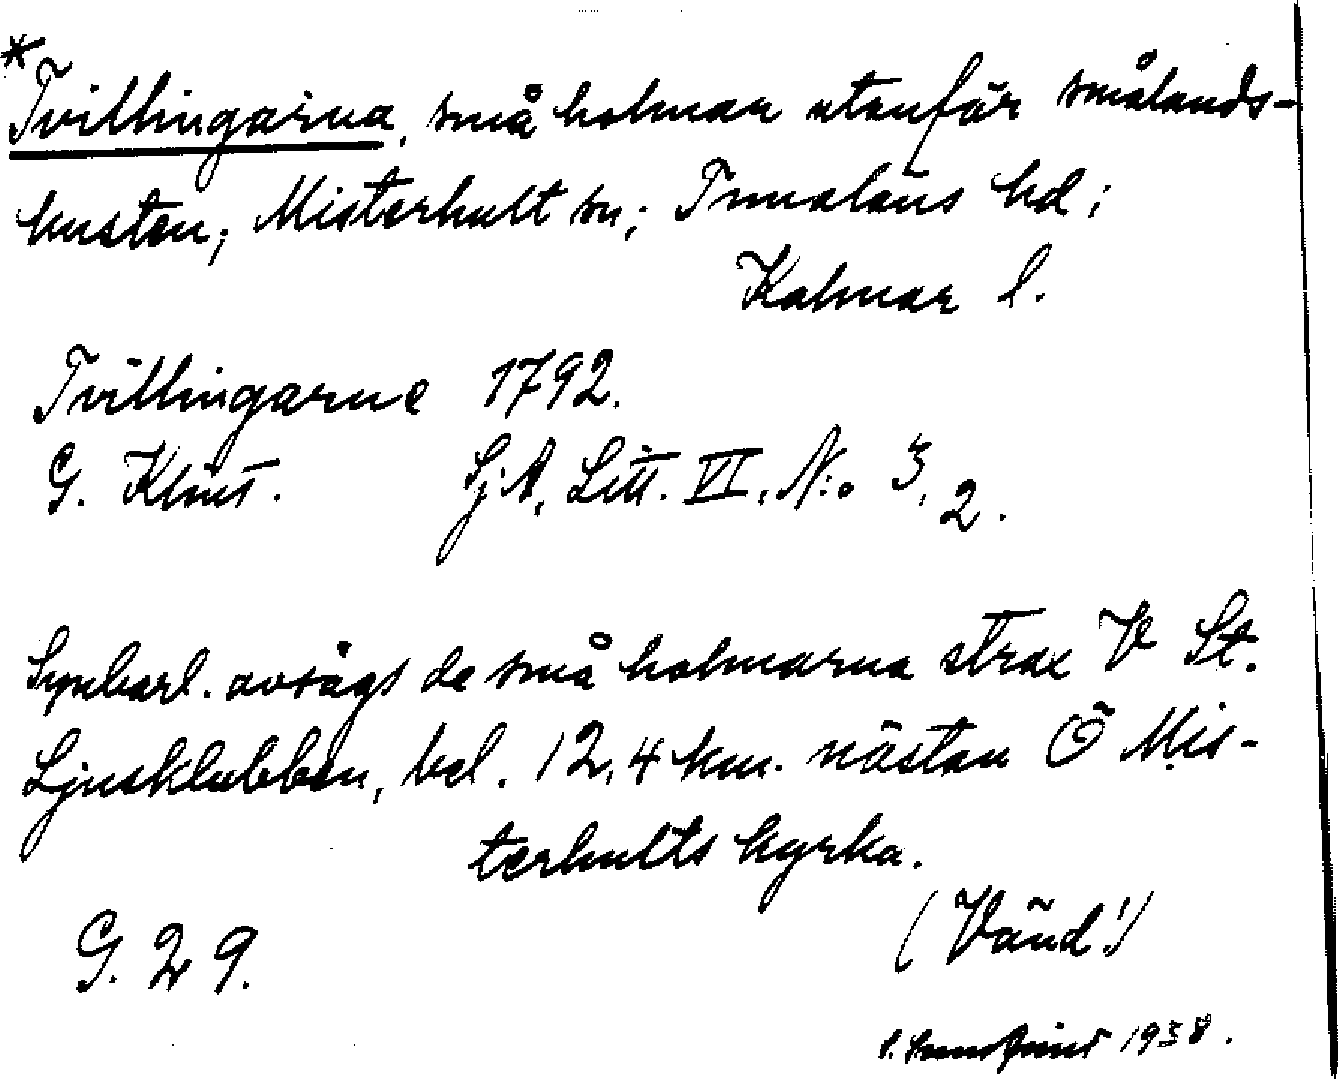 *Tvillingarna, små holmar utanför smålands-
kusten; Misterhult sn; Tunaläns hd;
Kalmar l.
Tvillingarne 1792.
G. Klint. SjA, Litt. VI, N:o 3, 2.
Synbarl. avsågs de små holmarna strax V St.
Ljusklubben, bel. 12,4 km. nästan Ö Mis-
terhults kyrka.
(Vänd!)
G. 29.
1938.